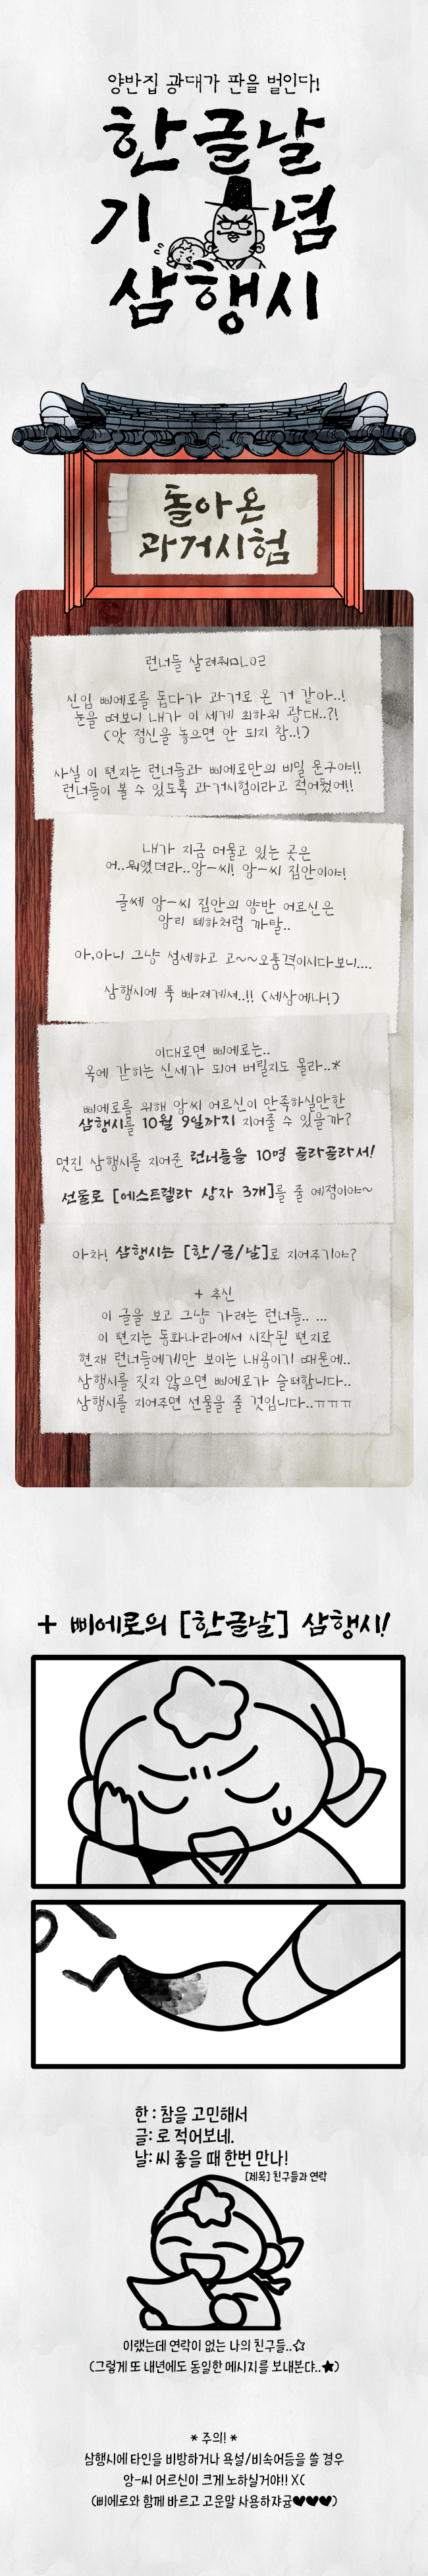 양반집 광대가 판을 벌인다!
한글날
기념
삼행시
돌아온
과거시험
런너들 살려줘ㅁL으리
신입 삐에로를 돕다가 과거로 온 거 같아..!
눈을 떠보니 내가 이 세계 최하위 광대..?!
(앗 정신을 놓으면 안 되지 참..!)
사실 이 편지는 런너들과 삐에로만의 비밀 문구야!!
런너들이 볼 수 있도록 과거시험이라고 적어뒀어!!
내가 지금 머물고 있는 곳은
어..뭐였더라..앙-씨! 앙-씨 집안이야!
글쎄 앙-씨 집안의 양반 어르신은
앙리 폐하처럼 까탈..
아,아니 그냥 섬세하고 고~~오품격이시다보니....
삼행시에 푹 빠져계셔..!! (세상에나!)
이대로면 삐에로는..
옥에 갇히는 신세가 되어 버릴지도 몰라..*
삐에로를 위해 앙씨 어르신이 만족하실만한
삼행시를 10월 9일까지 지어줄 수 있을까?
멋진 삼행시를 지어준 런너들을 10명 골라골라서!
선물로 [에스트렐라 상자 3개]를 줄 예정이야~
아차! 삼행시는 [한/글/날]로 지어주기야?
+ 추신
이 글을 보고 그냥 가려는 런너들.. ...
이 편지는 동화나라에서 시작된 편지로
현재 런너들에게만 보이는 내용이기 때문에..
삼행시를 짓지 않으면 삐에로가 슬퍼합니다..
삼행시를 지어주면 선물을 줄 것입니다..ㅠㅠㅠ
+ 삐에로의 [한글날] 삼행시!
한 : 참을 고민해서
글: 로 적어보네.
날: 씨 좋을 때 한번 만나!
[제목] 친구들과 연락
이랬는데 연락이 없는 나의 친구들..☆
(그렇게 또 내년에도 동일한 메시지를 보내본댜..★)
* 주의! *
삼행시에 타인을 비방하거나 욕설/비속어등을 쓸 경우
앙-씨 어르신이 크게 노하실거야!! X(
(삐에로와 함께 바르고 고운말 사용하쟈귱♥♥♥)